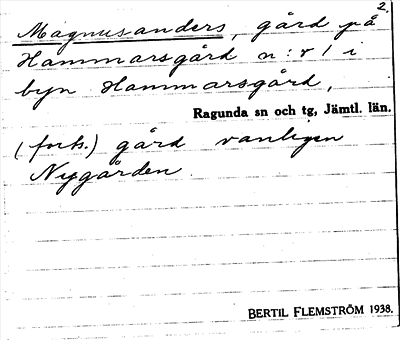 2.
Magnusanders, gård på
Hammarsgård n:r 1 i
byn Hammarsgård,
Ragunda sn och tg, Jämtl. län.
(forts.) gård vanligen
Nygården.
BERTIL FLEMSTRÖM 1938.